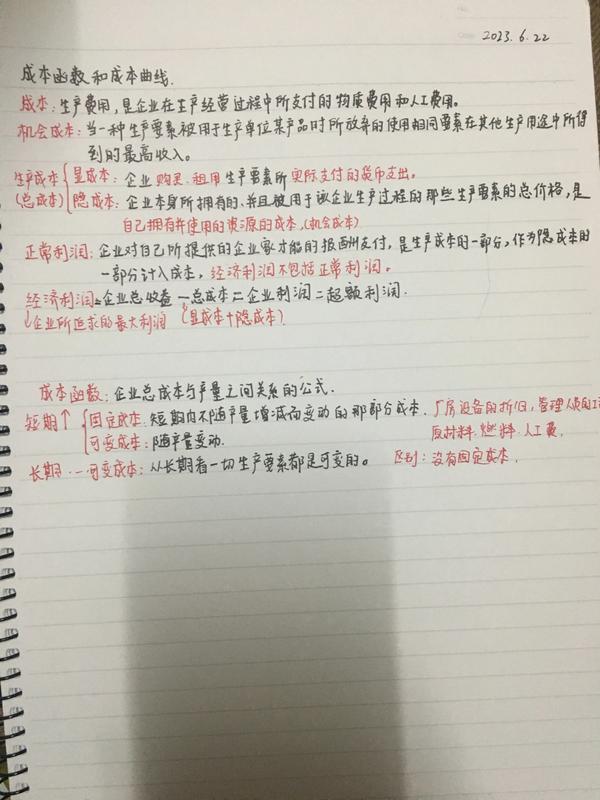 2023.6.22
成本函数和成本曲线.
成本:生产费用,是企业在生产经营过程中所支付的物质费用和人工费用。
机会成本:当一种生产要素被用于生产单位某产品时所放弃的使用相同要素在其他生产用途中所得
到的最高收入。
生产成本 显成本:企业购买.租用生产要素所实际支付的货币支出。
(总成本) 隐成本:企业本身所拥有的.并且被用于该企业生产过程的那些生产要素的总价格,是
自己拥有并使用的资源的成本.(机会成本)
正常利润:企业对自己所提供的企业家才能的报酬支付,是生产成本的一部分,作为隐成本的
一部分计入成本,经济利润不包括正常利润。
经济利润=企业总收益-总成本=企业利润=超额利润.
↳企业所追求的最大利润 (显成本+隐成本)
成本函数:企业总成本与产量之间关系的公式.
短期↑ 固定成本:短期内不随产量增减而变动的那部分成本.厂房设备的折旧,管理人员的工
可变成本:随产量变动. 原材料.燃料.人工费.
长期.—可变成本:从长期看一切生产要素都是可变的。 区别:没有固定成本.